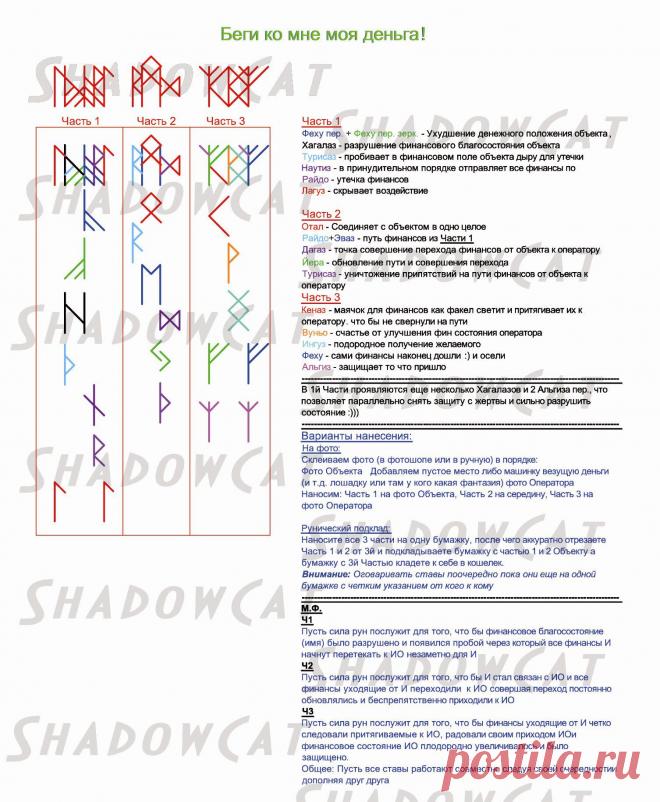 Беги ко мне моя деньга!
SHADOWCAT
Часть 1
Часть 2
Часть 3
SHADOWCAT
SHADOWCAT
SHADOWCAT
SHADOWCAT
SHADOWCAT
SHADOWCAT
SHADOWCAT
SHADOWCAT
SHADOWCAT
SHADOWCAT
SHADOWCAT
Часть 1
Феху пер. + Феху пер. зерк. - Ухудшение денежного положения объекта ,
Хагалаз - разрушение финансового благосостояния объекта
Турисаз - пробивает в финансовом поле объекта дыру для утечки
Наутиз - в принудительном порядке отправляет все финансы по
Райдо - утечка финансов
Лагуз - скрывает воздействие
Часть 2
Отал - Соединяет с объектом в одно целое
Райдо+Эваз - путь финансов из Части 1
Дагаз - точка совершение перехода финансов от объекта к оператору
Йера - обновление пути и совершения перехода
Турисаз - уничтожение припятствий на пути финансов от объекта к
оператору
Часть 3
Кеназ - маячок для финансов как факел светит и притягивает их к
оператору. что бы не свернули на пути
Вуньо - счастье от улучшения фин состояния оператора
Ингуз - подородное получение желаемого
Феху - сами финансы наконец дошли :) и осели
Альгиз - защищает то что пришло
В 1й Части проявляются еще несколько Хагалазов и 2 Альгиза пер., что
позволяет параллельно снять защиту с жертвы и сильно разрушить
состояние :)))
Варианты нанесения:
На фото:
Склеиваем фото (в фотошопе или в ручную) в порядке:
Фото Объекта Добавляем пустое место либо машинку везущую деньги
(и т.д. лошадку или там у кого какая фантазия) фото Оператора
Наносим: Часть 1 на фото Объекта, Часть 2 на середину, Часть 3 на
фото Оператора
Рунический подклад:
Наносите все 3 части на одну бумажку, после чего аккуратно отрезаете
Часть 1 и 2 от 3й и подкладываете бумажку с частью 1 и 2 Объекту а
бумажку с 3й Частью кладете к себе в кошелек.
Внимание: Оговаривать ставы поочередно пока они еще на одной
бумажке с четким указанием от кого к кому
М.Ф.
Ч1
Пусть сила рун послужит для того, что бы финансовое благосостояние
(имя) было разрушено и появился пробой через который все финансы И
начнут перетекать к ИО незаметно для И
Ч2
Пусть сила рун послужит для того, что бы И стал связан с ИО и все
финансы уходящие от И переходили к ИО совершая переход постоянно
обновлялись и беспрепятственно приходили к ИО
Ч3
Пусть сила рун послужит для того, что бы финансы уходящие от И четко
следовали притягиваемые к ИО, радовали своим приходом ИОи
финансовое состояние ИО плодородно увеличивалось и было
защищено.
Общее: Пусть все ставы работают совместно следуя своей очередности
дополняя друг друга
postila.ru